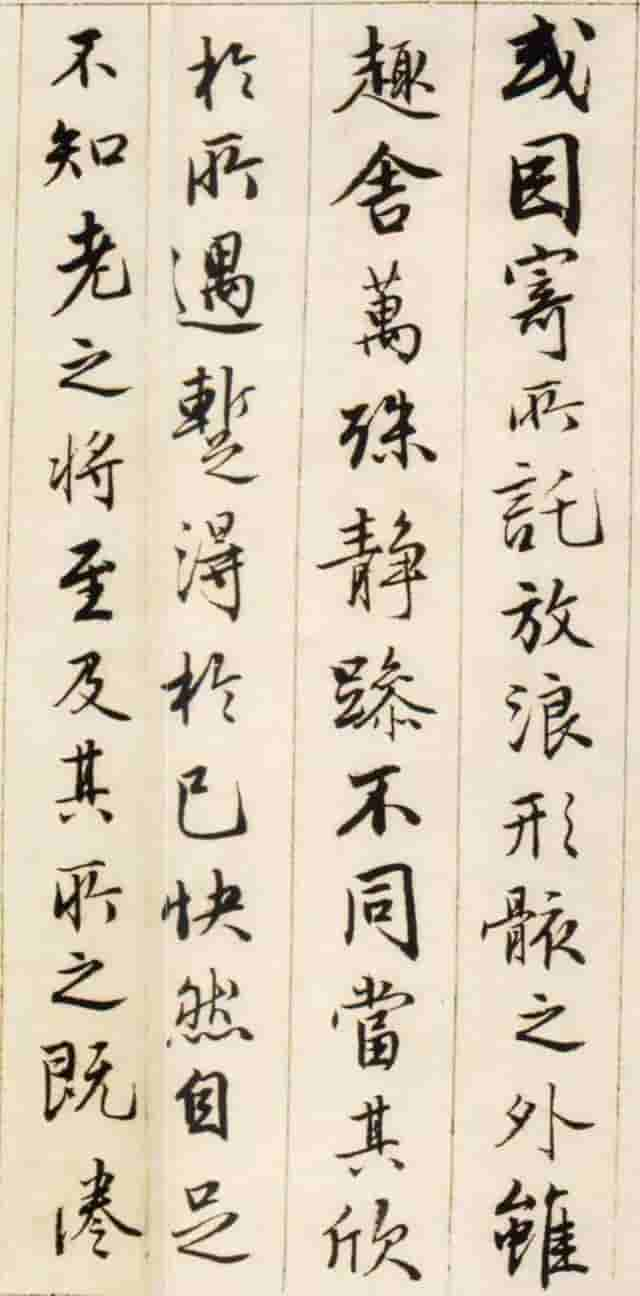 或因寄所託放浪形骸之外雖
趣舍萬殊静躁不同當其欣
於所遇暫得於己快然自足
不知老之將至及其所之既惓